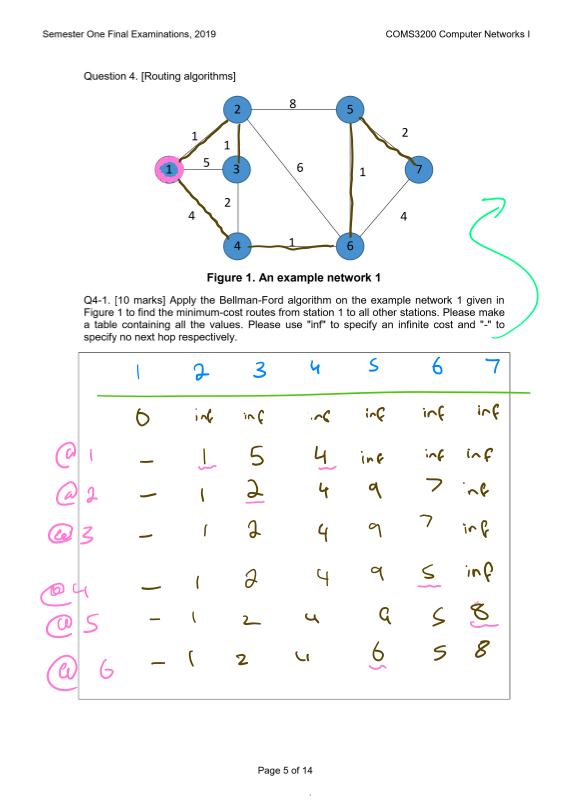 Semester One Final Examinations, 2019 COMS3200 Computer Networks I
Question 4. [Routing algorithms]
8
2 5
1 1 2
1 5 3 6 1 7
2
4 4
4 1 6
Figure 1. An example network 1
Q4-1. [10 marks] Apply the Bellman-Ford algorithm on the example network 1 given in
Figure 1 to find the minimum-cost routes from station 1 to all other stations. Please make
a table containing all the values. Please use "inf" to specify an infinite cost and "-" to
specify no next hop respectively.
1 2 3 4 5 6 7
0 inf inf inf inf inf inf
@ 1 - 1 5 4 inf inf inf
@ 2 - 1 2 4 9 7 inf
@ 3 - 1 2 4 9 7 inf
@ 4 - 1 2 4 9 5 inf
@ 5 - 1 2 4 9 5 8
@ 6 - 1 2 4 6 5 8
Page 5 of 14